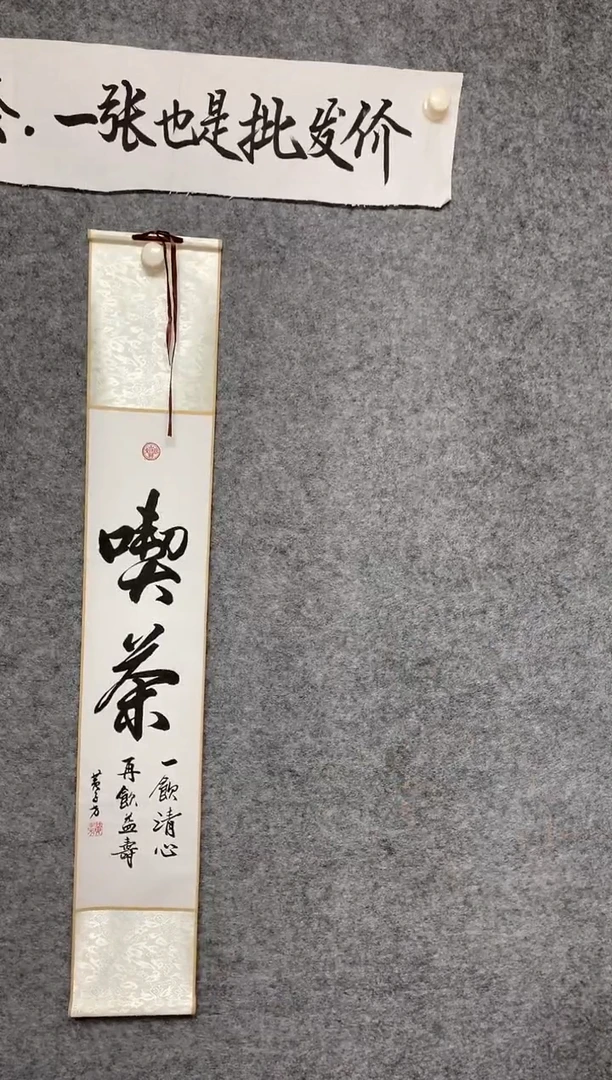 一张也是批发价
喫茶
一飲清心
再飲益壽